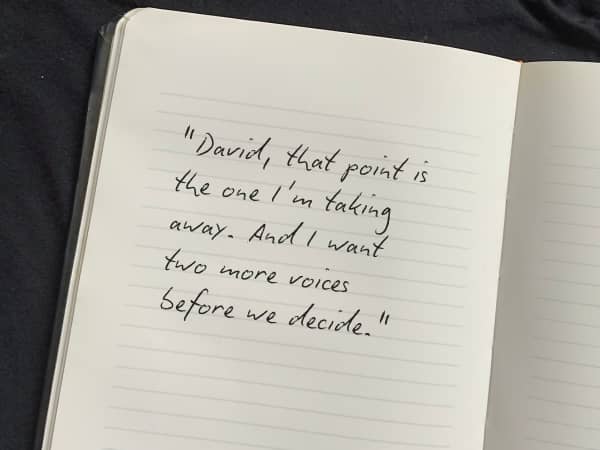 "David, that point is
the one I'm taking
away. And I want
two more voices
before we decide."